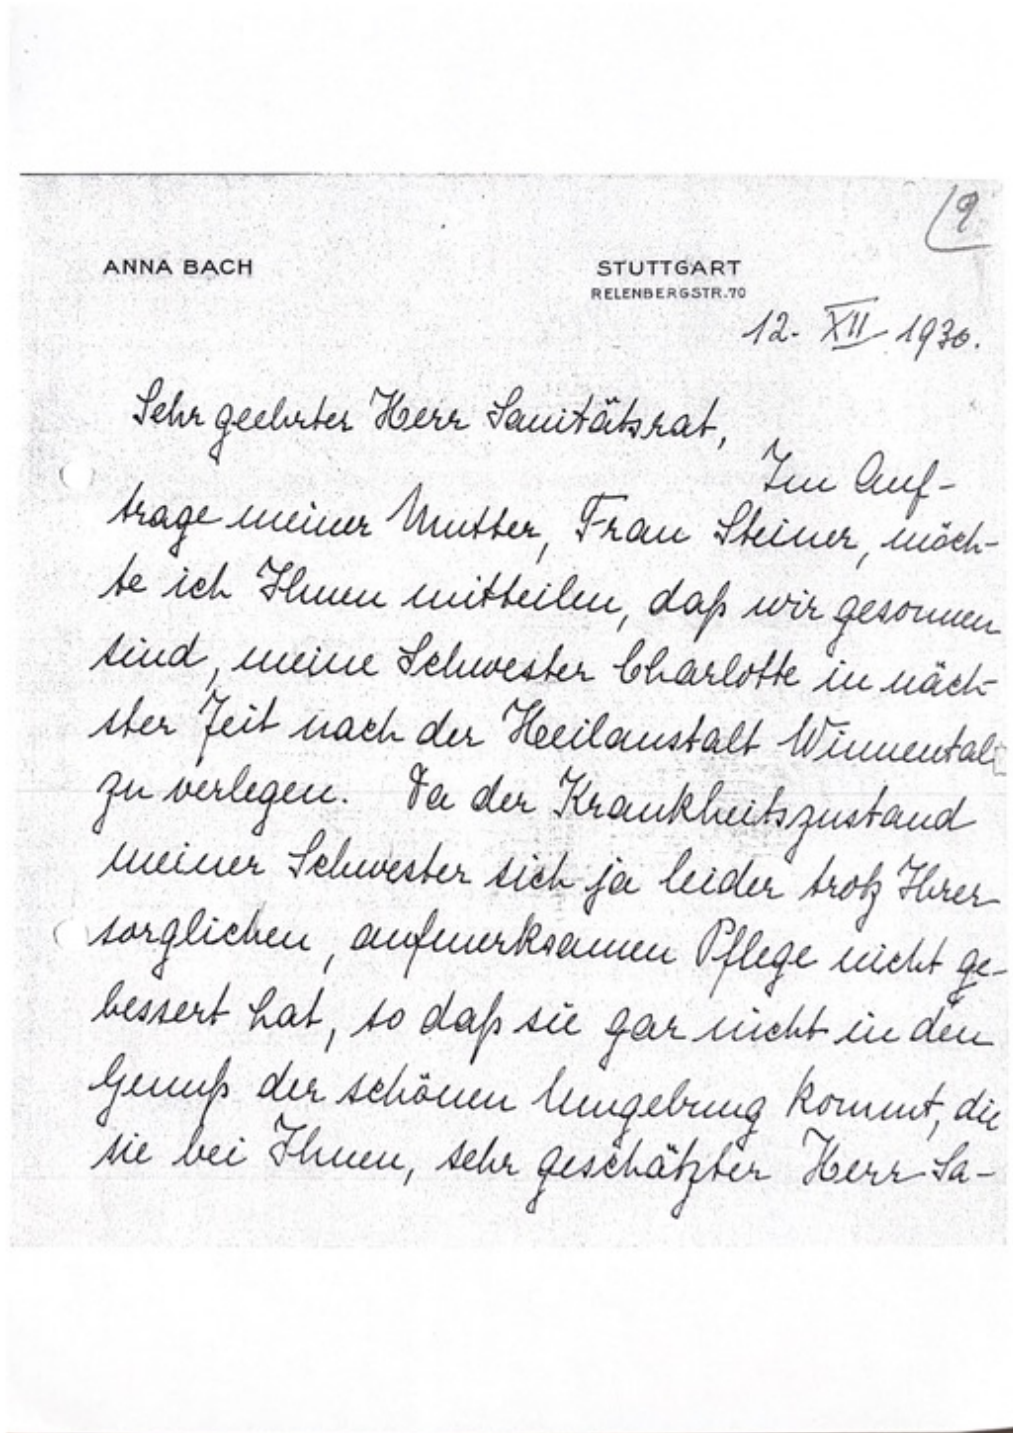 9
ANNA BACH
STUTTGART
RELENBERGSTR.70
12. XII 1930.
Sehr geehrter Herr Sanitätsrat,
Im Auf-
trage meiner Mutter, Frau Steiner, möch-
te ich Ihnen mitteilen, daß wir gesonnen
sind, meine Schwester Charlotte in näch-
ster Zeit nach der Heilanstalt Winnental
zu verlegen. Da der Krankheitszustand
meiner Schwester sich ja leider trotz Ihrer
sorglichen, aufmerksamen Pflege nicht ge-
bessert hat, so daß sie gar nicht in den
Genuß der schönen Umgebung kommt, die
sie bei Ihnen, sehr geschätzter Herr Sa-